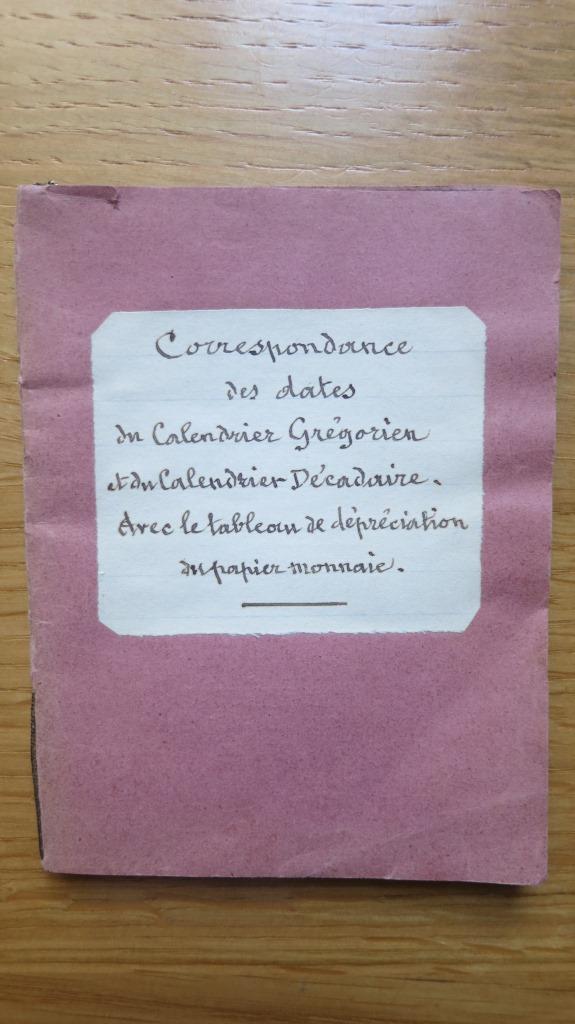 Correspondance
des dates
du Calendrier Grégorien
et du Calendrier Décadaire.
Avec le tableau de dépréciation
du papier monnaie.